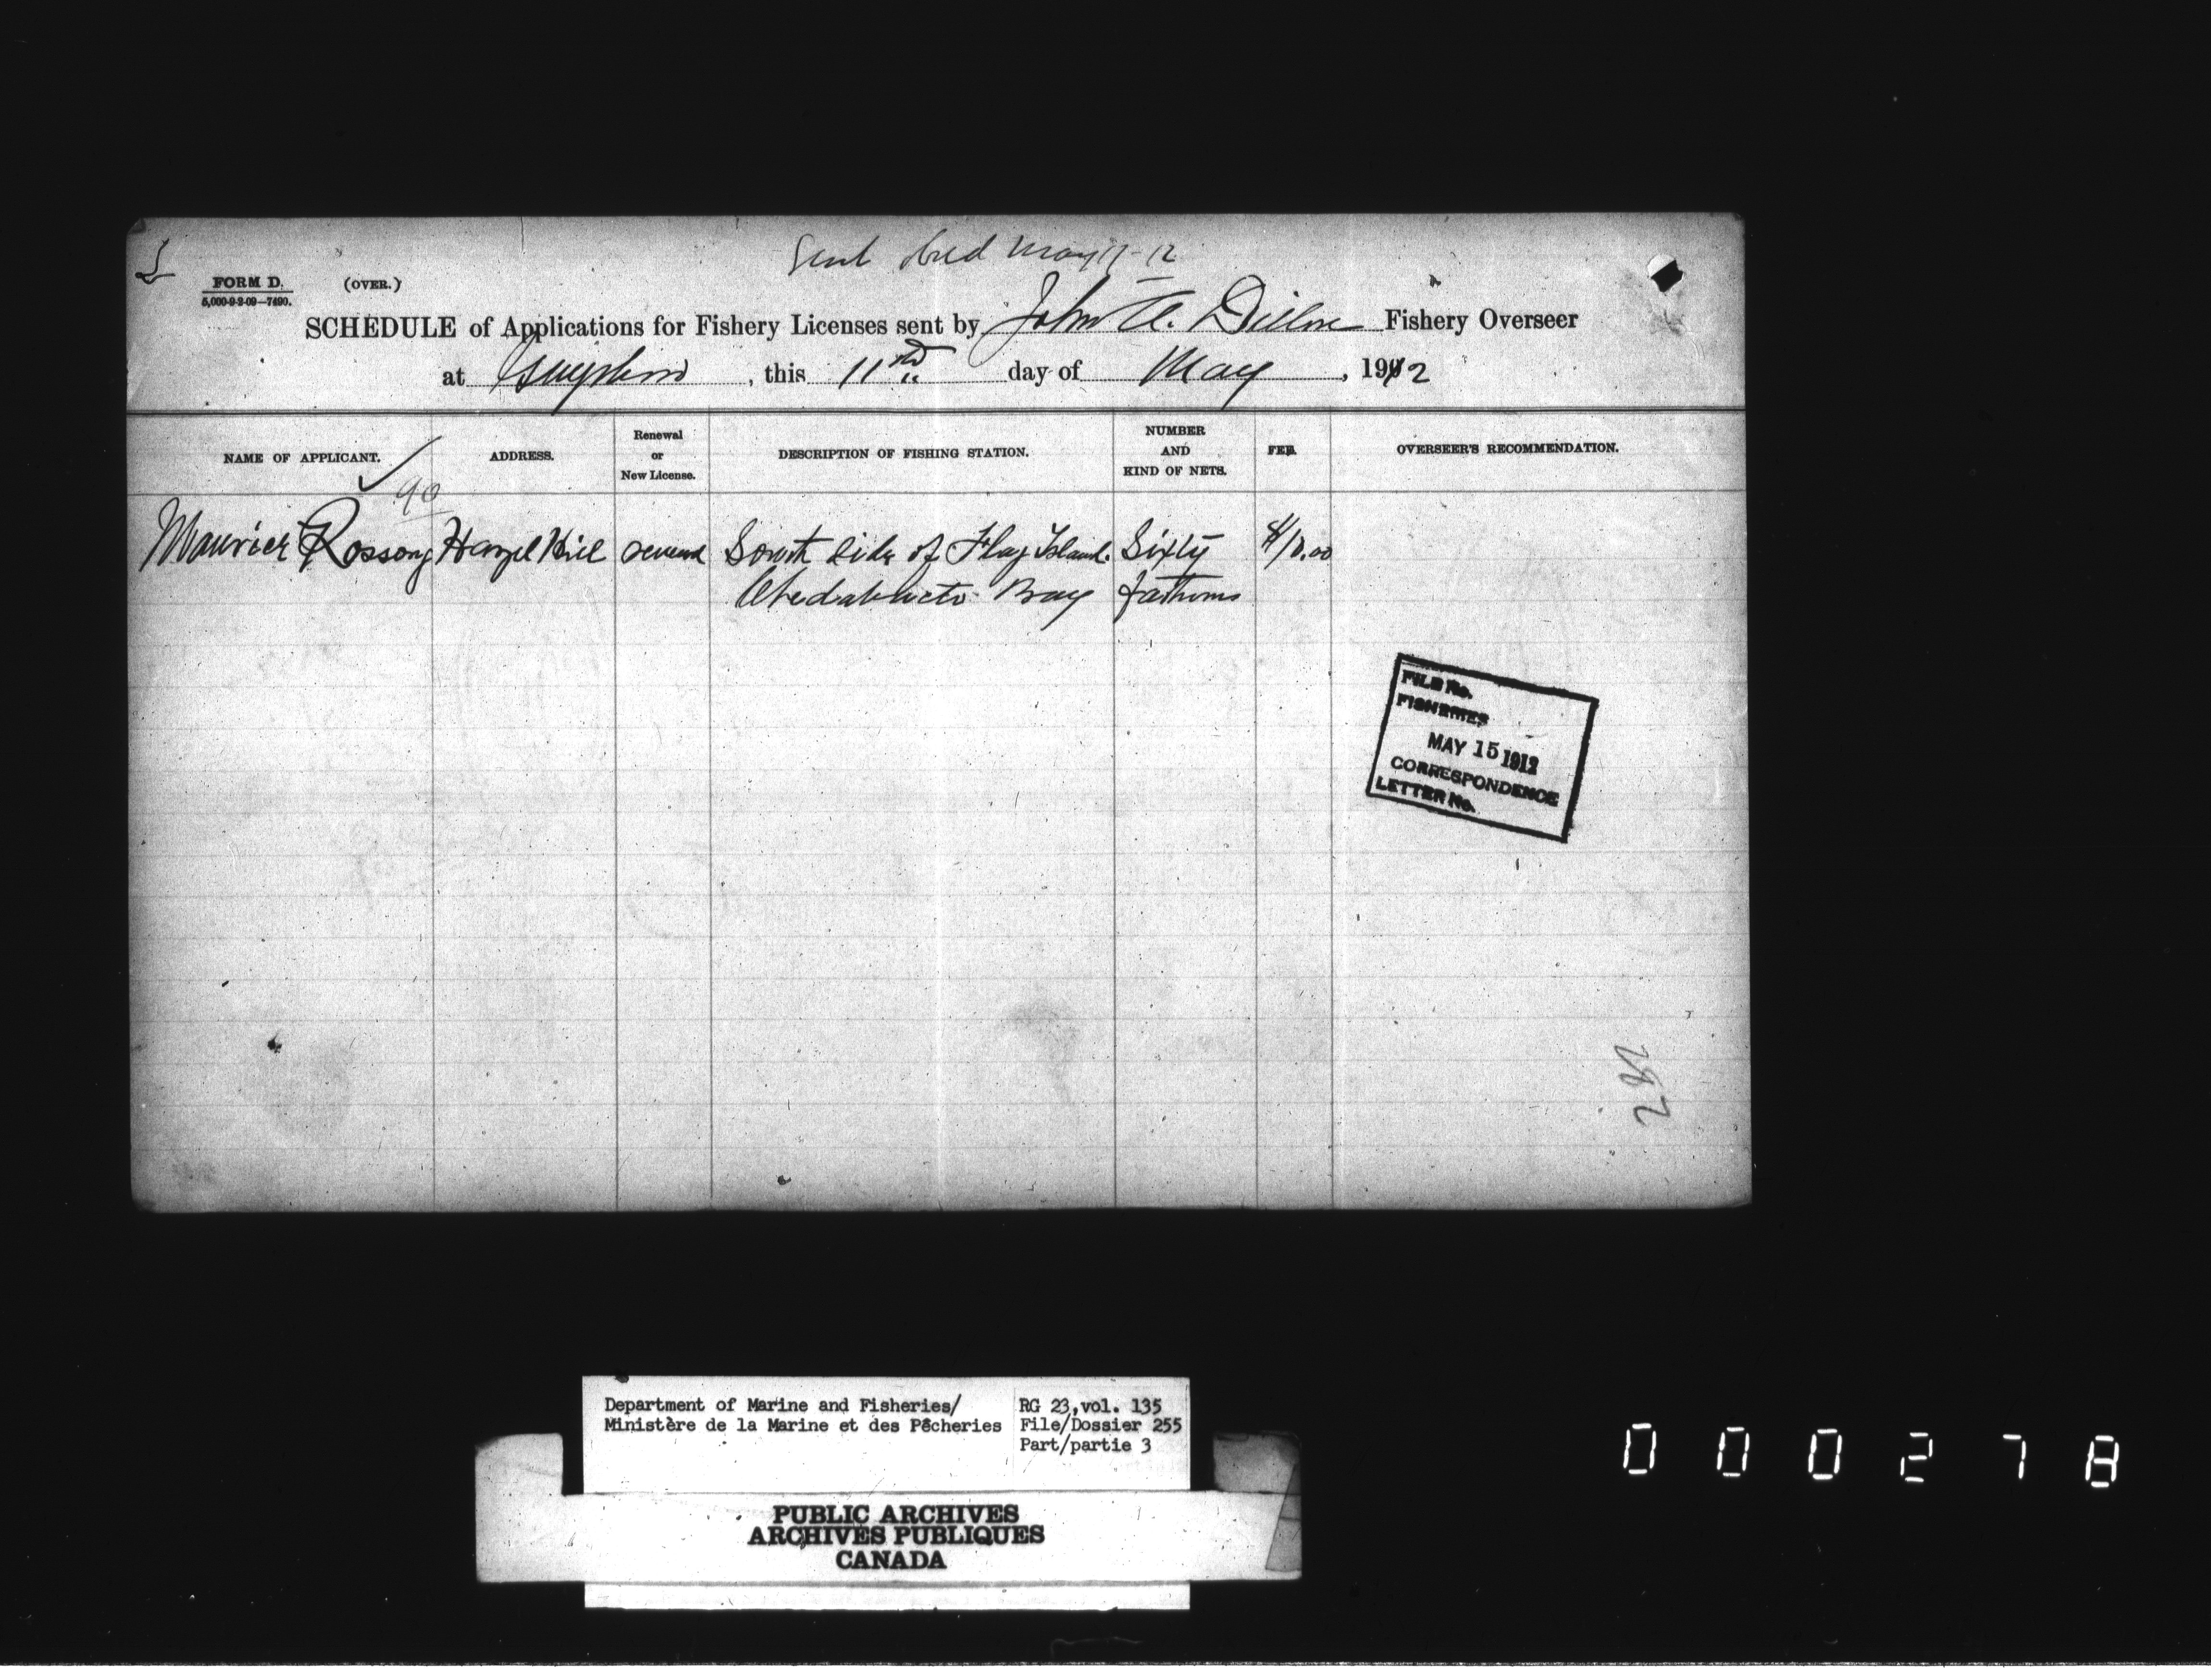 May 17-12
FORM D. (OVER.)
5,000-9-3-09—7490.
SCHEDULE of Applications for Fishery Licenses sent by John A. Dillon Fishery Overseer
at Guysboro, this 11th day of May, 1912
NAME OF APPLICANT. ADDRESS. Renewal or New License. DESCRIPTION OF FISHING STATION. NUMBER AND KIND OF NETS. FEE. OVERSEER'S RECOMMENDATION.
90
Hazel Hill renewal South side of Flag Island. Sixty $10.00
Chedabucto Bay fathoms
FILE No.
FISHERIES
MAY 15 1912
CORRESPONDENCE
LETTER No.
282
Department of Marine and Fisheries/ RG 23, vol. 135
Ministère de la Marine et des Pêcheries File/Dossier 255
Part/partie 3
PUBLIC ARCHIVES
ARCHIVES PUBLIQUES
CANADA
000278